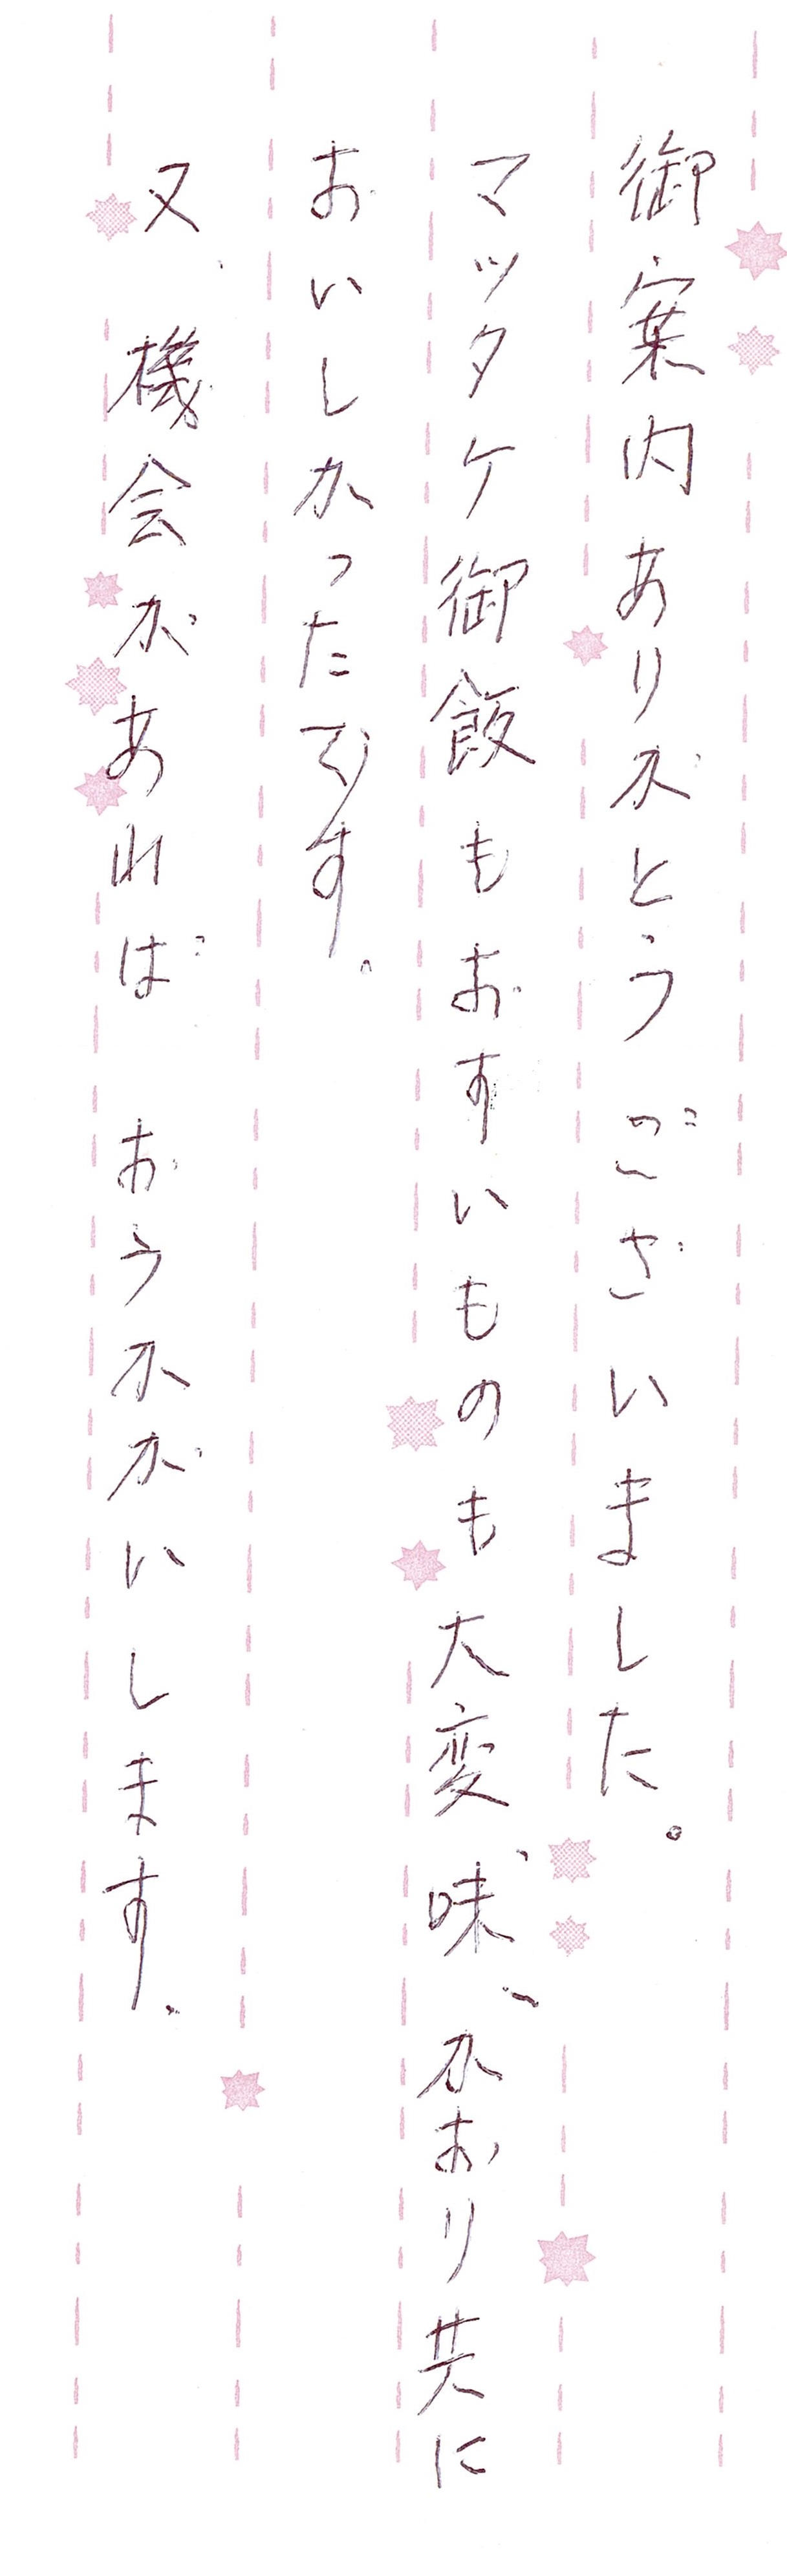 御案内ありがとうございました。
マツタケ御飯もおすいものも大変味、かおり共に
おいしかったです。
又、機会があればおうかがいします。